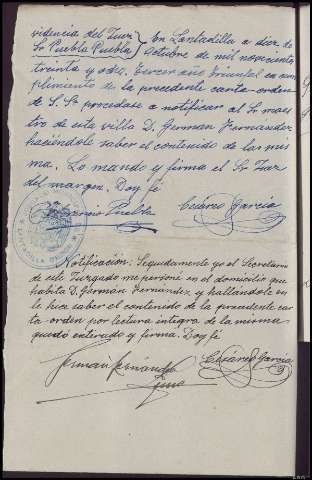 videncia del Juez
Sr Puebla Puebla
En Lantadilla a diez de
Octubre de mil novecientos
treinta y ocho. Tercer año triunfal en cum
plimiento de la precedente carta-orden
de S. Sª procedase a notificar al Sr maes
tro de esta villa D. Germán Fernandez
haciéndole saber el contenido de la mis
ma. Lo mando y firma el Sr Juez
del margen. Doy fé
Puebla Cesáreo García
LANTADILLA
Notificación: Seguidamente yo el Secretario
de este Juzgado me personé en el domicilio que
habita D. Germán Fernández y hallándole en
le hice saber el contenido de la precedente car
ta orden por lectura integra de la misma
quedó enterado y firma. Doy fé
Germán Fernández Cesáreo García